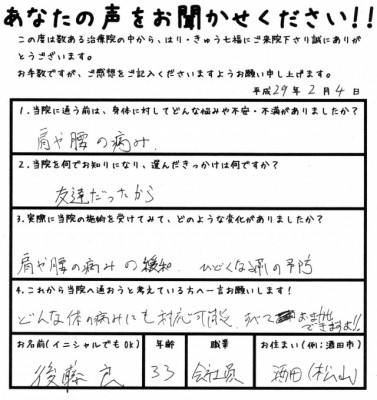 あなたの声をお聞かせください!!
この度は数ある治療院の中から、はり・きゅう七福にご来院下さり誠にありが
とうございます。
お手数ですが、ご感想をご記入くださいますようお願い申し上げます。
平成29年2月4日
1.当院に通う前は、身体に対してどんな悩みや不安・不満がありましたか?
肩や腰の痛み.
2.当院を何でお知りになり、選んだきっかけは何ですか?
友達だったから
3.実際に当院の施術を受けてみて、どのような変化がありましたか?
肩や腰の痛みの緩和. ひどくなる前の予防
4.これから当院へ通おうと考えている方へ一言お願いします!
どんな体の痛みにも対応可能.
おまかせ
できますよ!!
お名前(イニシャルでもOK) 年齢 職業 お住まい(例:酒田市)
後藤 33 会社員 酒田(松山)